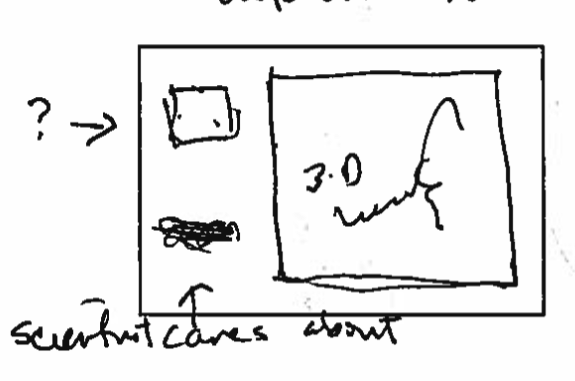 ?
3-D
scientist cares about